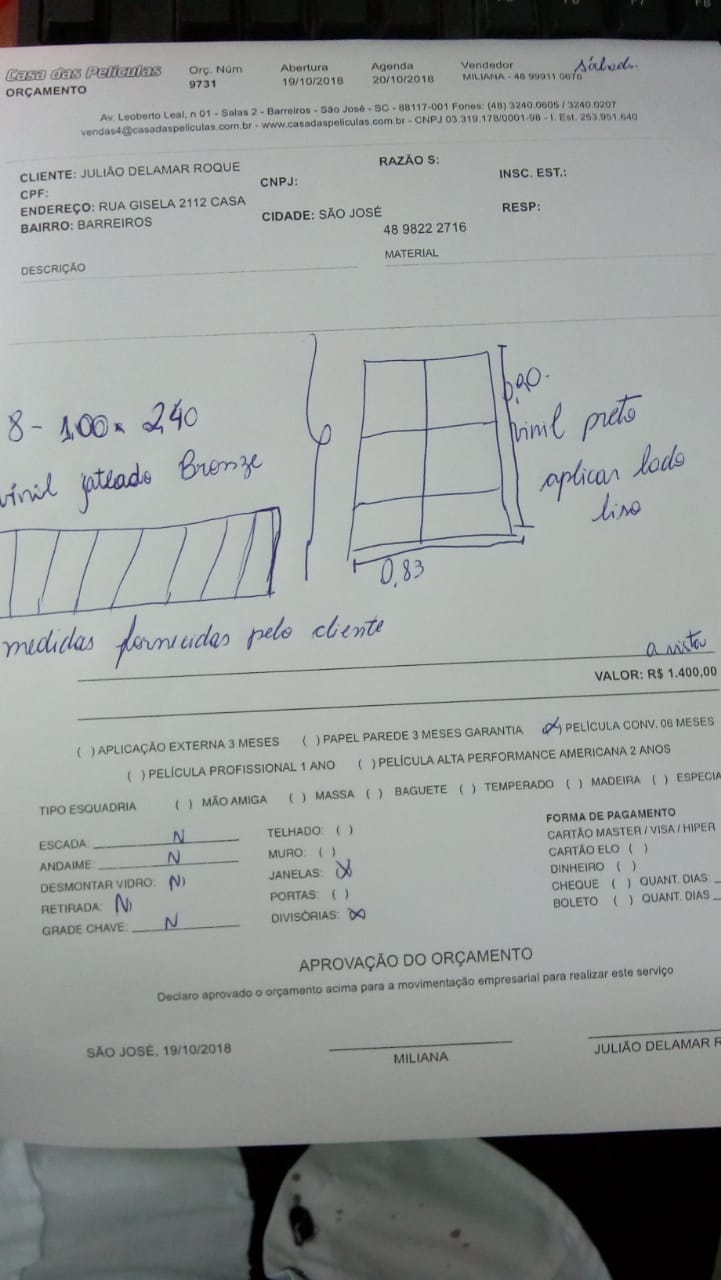 Casa das Películas
ORÇAMENTO
Orç. Núm
9731
Abertura
19/10/2018
Agenda
20/10/2018
Vendedor
MILIANA - 48 99911 0676
Av. Leoberto Leal, n 01 - Salas 2 - Barreiros - São José - SC - 88117-001 Fones: (48) 3240.0605 / 3240.0207
vendas4@casadaspeliculas.com.br - www.casadaspeliculas.com.br - CNPJ 03.319.178/0001-98 - I. Est. 253.951.640
CLIENTE: JULIÃO DELAMAR ROQUE
CPF:
ENDEREÇO: RUA GISELA 2112 CASA
BAIRRO: BARREIROS
CNPJ:
CIDADE: SÃO JOSÉ
RAZÃO S:
48 9822 2716
INSC. EST.:
RESP:
DESCRIÇÃO
MATERIAL
8 - 1,00 x 2,40
vinil jateado Bronze
medidas fornecidas pelo cliente
0,90.
0,83
vinil preto
aplicar lado
liso
a vista
VALOR: R$ 1.400,00
( ) APLICAÇÃO EXTERNA 3 MESES ( ) PAPEL PAREDE 3 MESES GARANTIA (X) PELÍCULA CONV. 06 MESES
( ) PELÍCULA PROFISSIONAL 1 ANO ( ) PELÍCULA ALTA PERFORMANCE AMERICANA 2 ANOS
TIPO ESQUADRIA ( ) MÃO AMIGA ( ) MASSA ( ) BAGUETE ( ) TEMPERADO ( ) MADEIRA ( ) ESPECIA
ESCADA: N
ANDAIME: N
DESMONTAR VIDRO: (N)
RETIRADA: (N)
GRADE CHAVE: N
TELHADO: ( )
MURO: ( )
JANELAS: (X)
PORTAS: ( )
DIVISÓRIAS: (X)
FORMA DE PAGAMENTO
CARTÃO MASTER / VISA / HIPER
CARTÃO ELO ( )
DINHEIRO ( )
CHEQUE ( ) QUANT. DIAS:
BOLETO ( ) QUANT. DIAS
APROVAÇÃO DO ORÇAMENTO
Declaro aprovado o orçamento acima para a movimentação empresarial para realizar este serviço
SÃO JOSÉ, 19/10/2018
MILIANA
JULIÃO DELAMAR R